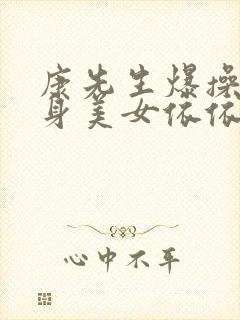 康先生爆操
身美女依依
心中不平